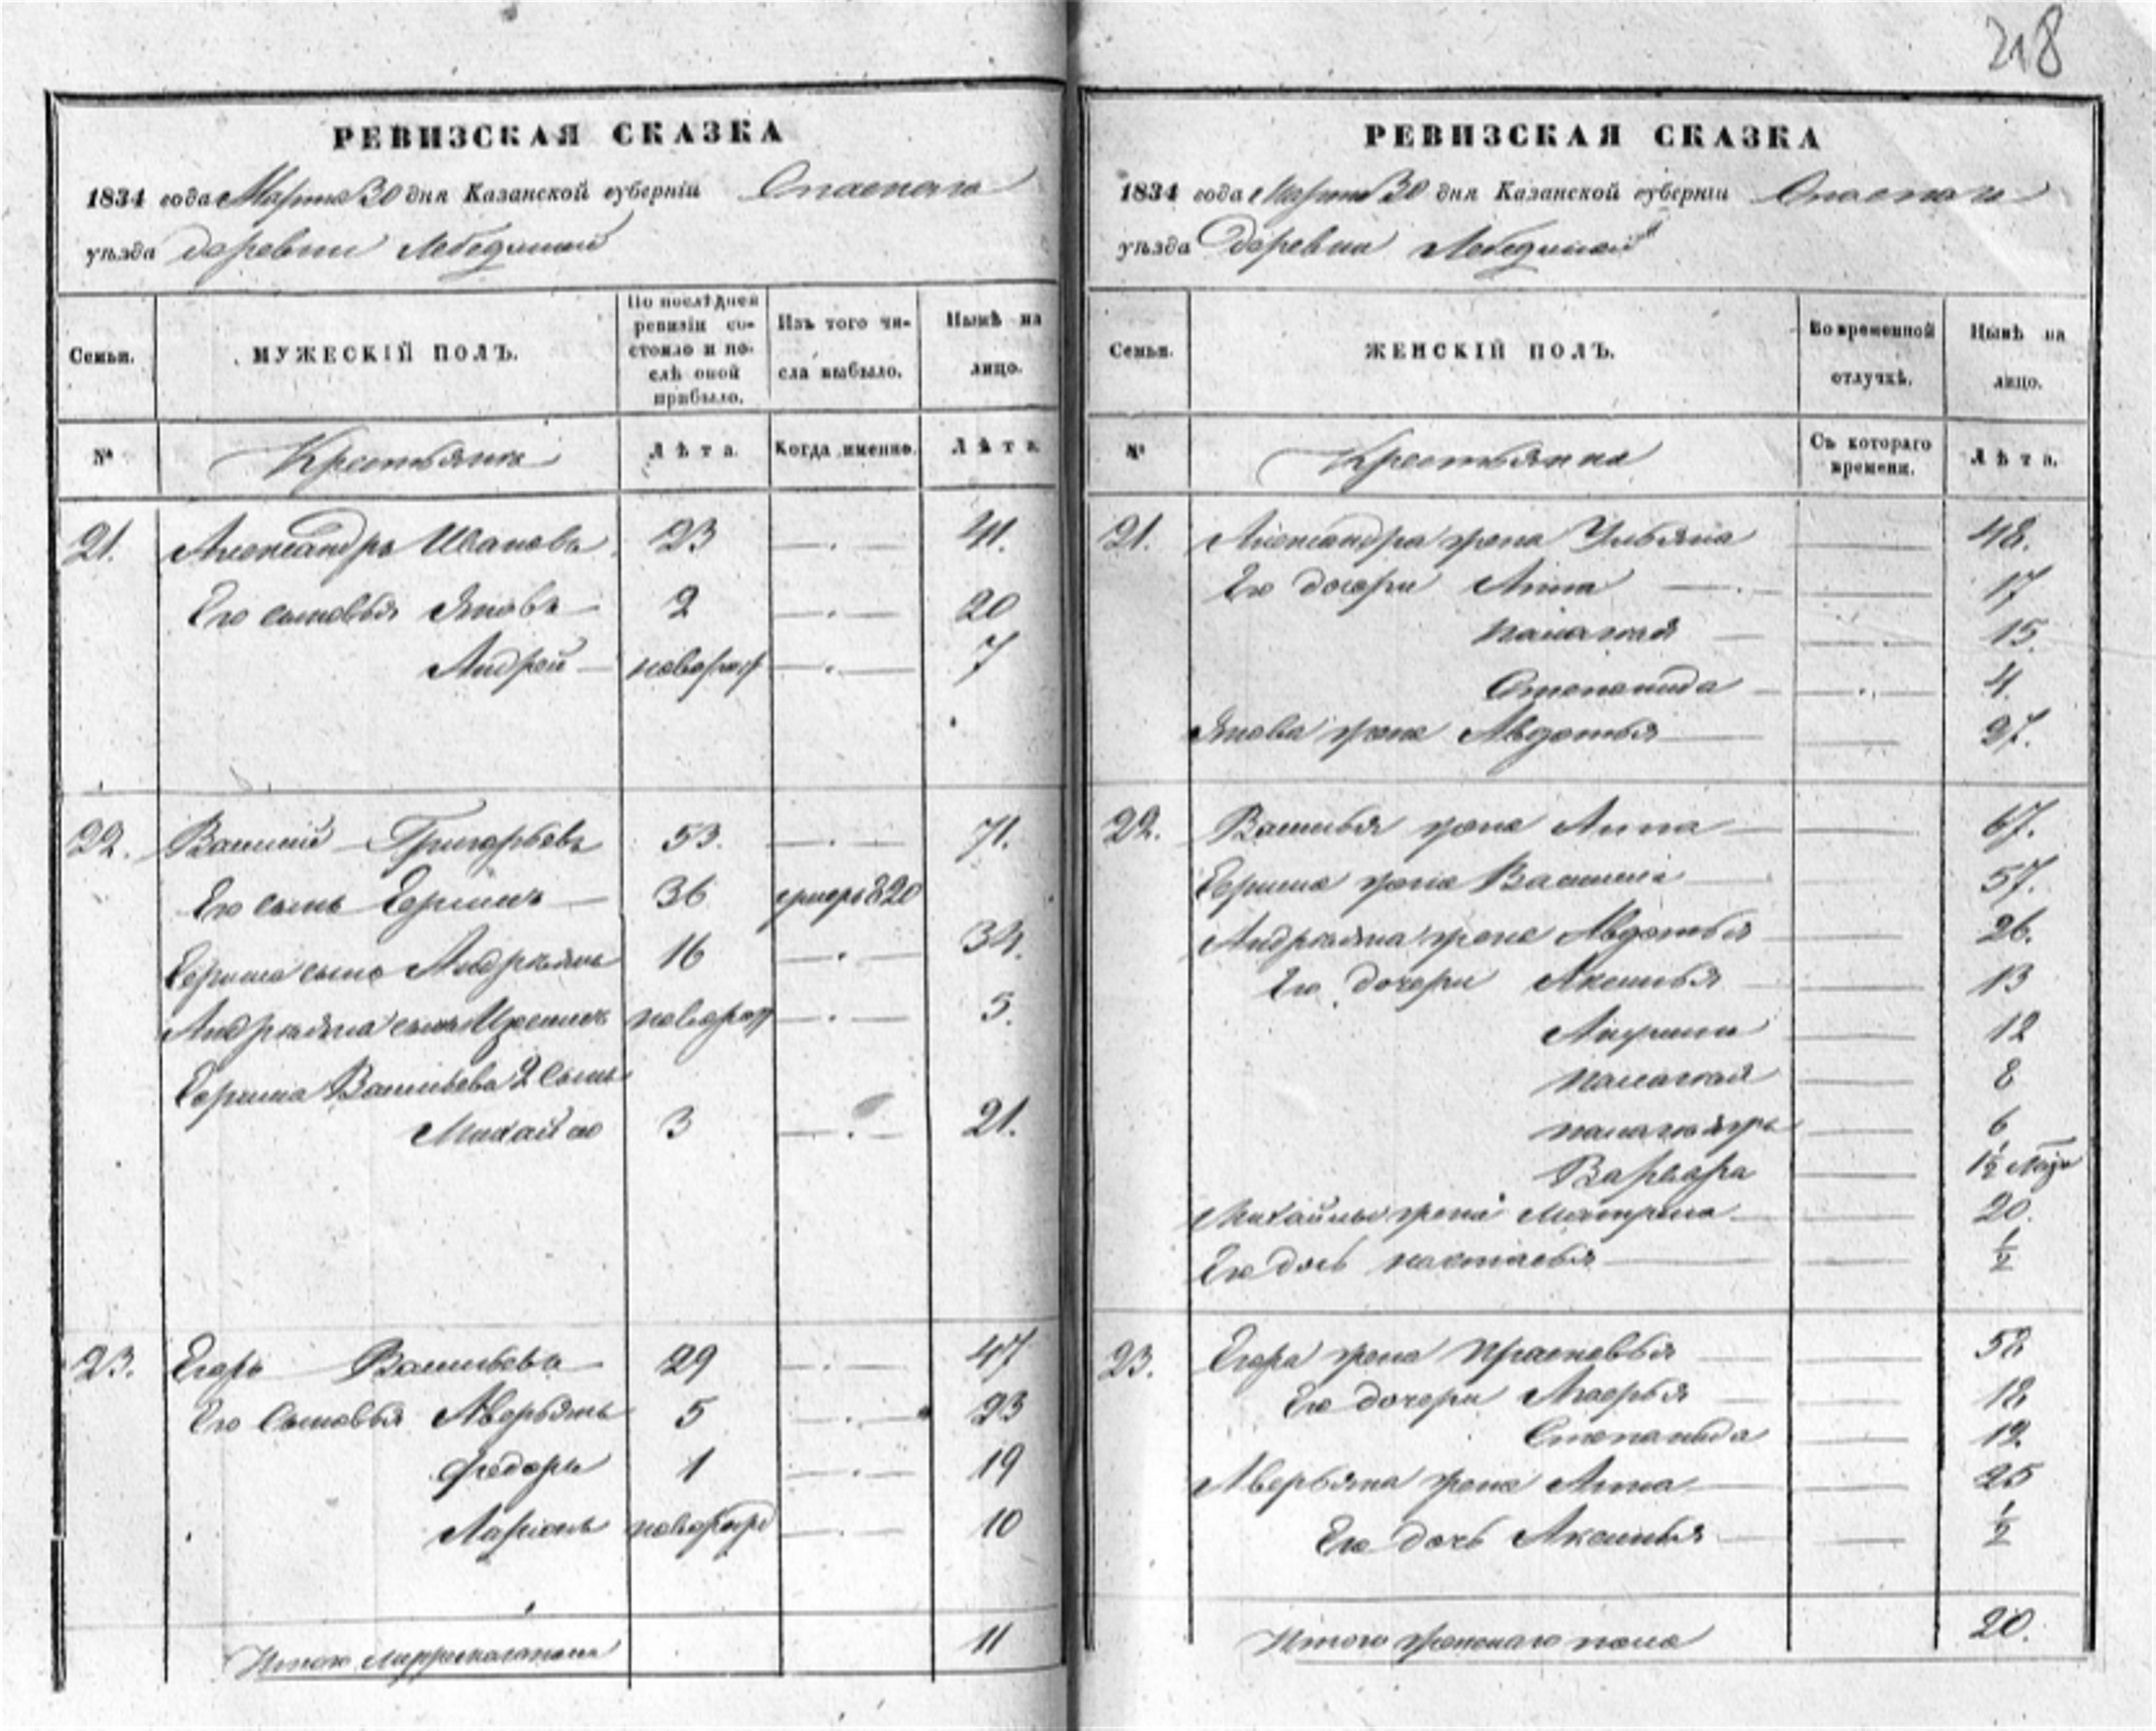 218
РЕВИЗСКАЯ СКАЗКА
1834 года Марта 30 дня Казанской губерніи Спаскаго
уѣзда деревни Лебединой
Семьи.
МУЖЕСКІЙ ПОЛЪ.
По послѣдней ревизіи состояло и послѣ оной прибыло.
Изъ того числа выбыло.
Нынѣ на лицо.
№
Крестьяня
Лѣта.
Когда именно.
Лѣта.
21. Александръ Ивановъ 23 41.
Его сыновья Яковъ 2 20
Андрей новорож 7
22. Василий Григорьевъ 53. 71.
Его сынъ Ефимъ 36 820
Ефима сынъ Андреянъ 16 34.
Андреяна сынъ новорож 5.
Ефима Васильева 2 сынъ
Михайло 3 21.
23. Егоръ Васильевъ 29 47
Его сыновья Аверьянъ 5 23
Федоръ 1 19
Ларіонъ новорож 10
Итого мужескаго пола 11
РЕВИЗСКАЯ СКАЗКА
1834 года Марта 30 дня Казанской губерніи Спаскаго
уѣзда деревни Лебединой
Семьи.
ЖЕНСКІЙ ПОЛЪ.
Во временной отлучкѣ.
Нынѣ на лицо.
№
Крестьянки
Съ котораго времени.
Лѣта.
21. Александра жена Ульяна 48.
Ею дочери Анна 17
Палагея 15.
Степанида 4.
Якова жена Авдотья 27.
22. Василья жена Анна 67.
Ефима жена Василиса 57.
Андреяна жена Авдотья 26.
Ею дочери Аксинья 13
12
Палагея 8
Палагея 6
Варвара 1½
Михайлы жена Матрена 20.
Ею дочь Настасья ½
23. Егора жена Прасковья 52
Ею дочери 18
Степанида 12
Аверьяна жена Анна 25
Ею дочь Аксинья ½
Итого женскаго пола 20.